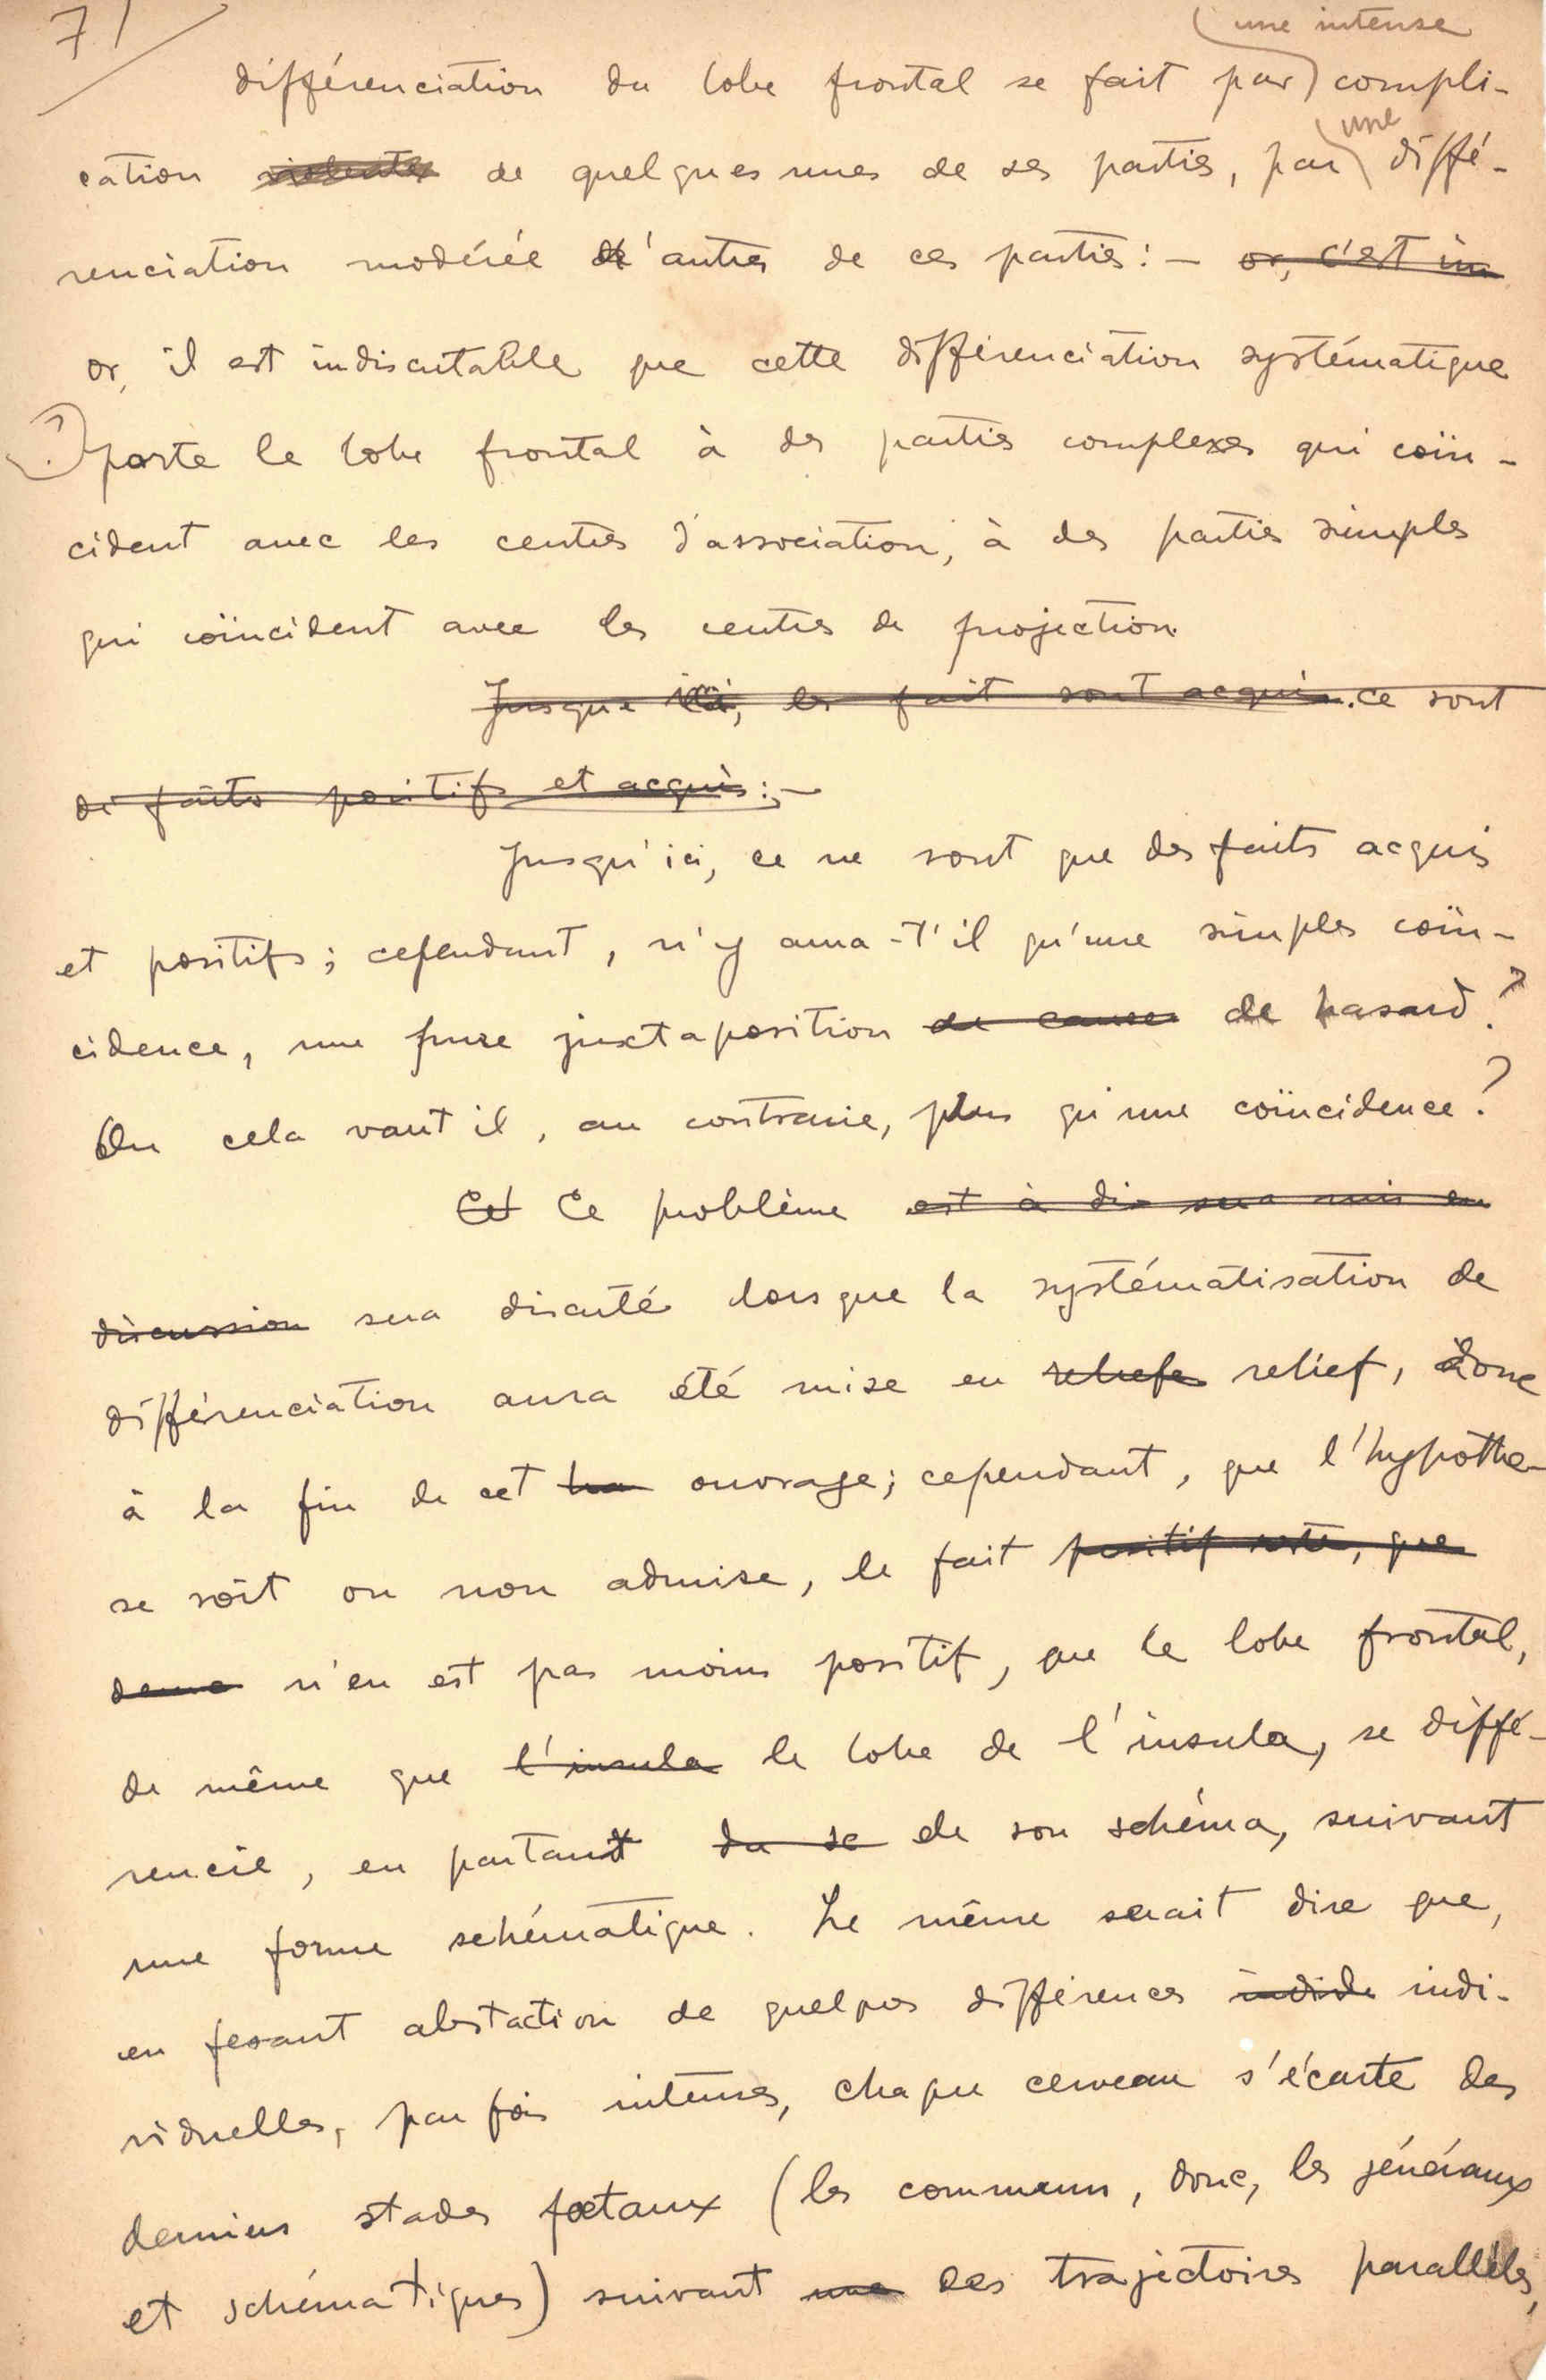 71
une intense
différenciation du lobe frontal se fait par compli-
une
cation violente de quelques unes de ses parties, par diffé-
renciation modérée d'autres de ces parties: – or, c'est in
or, il est indiscutable que cette différenciation systématique
(?) porte le lobe frontal à des parties complexes qui coïn-
cident avec les centres d'association, à des parties simples
qui coïncident avec les centres de projection.
Jusque ici, les fait sont acquis. ce sont
de faits positifs et acquis: –
Jusqu'ici, ce ne sont que des faits acquis
et positifs; cependant, n'y aura-t'il qu'une simples coïn-
cidence, une pure juxtaposition de causes de hasard?
Ou cela vaut il, au contraire, plus qu'une coïncidence?
Cet Ce problème est à dis sera mis en
discussion sera discuté lorsque la systématisation de
différenciation aura été mise en reliefe relief, donc
à la fin de cet ouvrage; cependant, que l'hypothe-
se soit ou non admise, le fait positif reste, que
n'en est pas moins positif, que le lobe frontal,
de même que l'insula le lobe de l'insula, se diffé-
rencie, en partant du sc de son schéma, suivant
une forme schématique. Le même serait dire que,
en fesant abstaction de quelques différences indidu indi-
viduelles, parfois intenses, chaque cerveau s'écarte des
derniers stades fœtaux (les communs, donc, les généraux
et schématiques) suivant une des trajectoires parallèles,